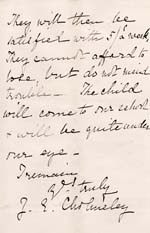 They will then be
satisfied with 5/ a week
They cannot afford to
lose, but do not mind
trouble – The child
will come to our school
& will be quite under
our eye –
I remain
Yrs truly
J. E. Cholmeley